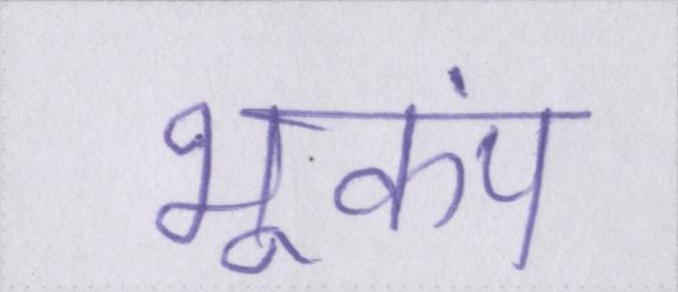 भूकंप